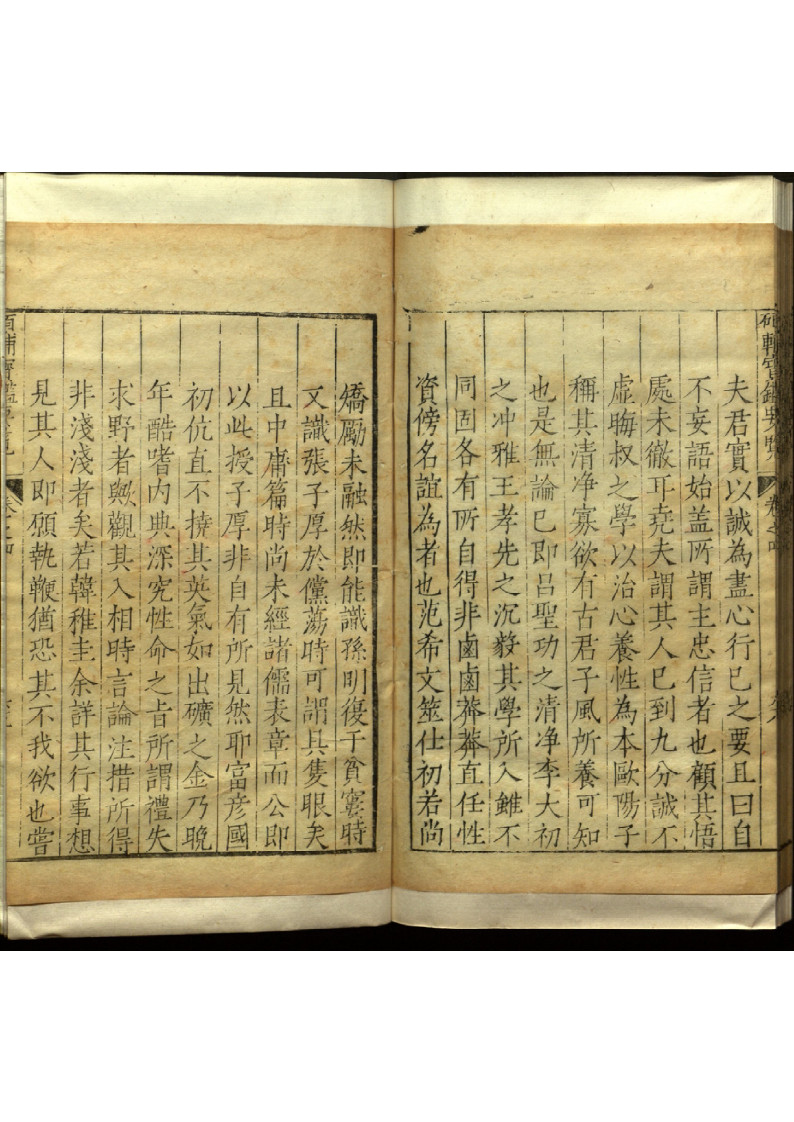 夫君實以誠為盡心行已之要且曰自
不妄語始盖所謂主忠信者也顧其悟
處未徹耳堯夫謂其人已到九分誠不
虛晦叔之學以治心養性為本歐陽子
稱其清净寡欲有古君子風所養可知
也是無論已即吕聖功之清净李大初
之冲雅王孝先之沉毅其學所入雖不
同固各有所自得非鹵鹵莽莽直任性
資傍名誼為者也范希文筮仕初若尚
矯厲未融然即能識孫明復于貧窶時
又識張子厚於儻蕩時可謂具隻眼矣
且中庸篇時尚未經諸儒表章而公即
以此授子厚非自有所見然耶富彦國
初伉直不撓其英氣如出礦之金乃晚
年酷嗜内典深究性命之旨所謂禮失
求野者歟觀其入相時言論注措所得
非淺淺者矣若韓稚圭余詳其行事想
見其人即願執鞭猶恐其不我欲也嘗